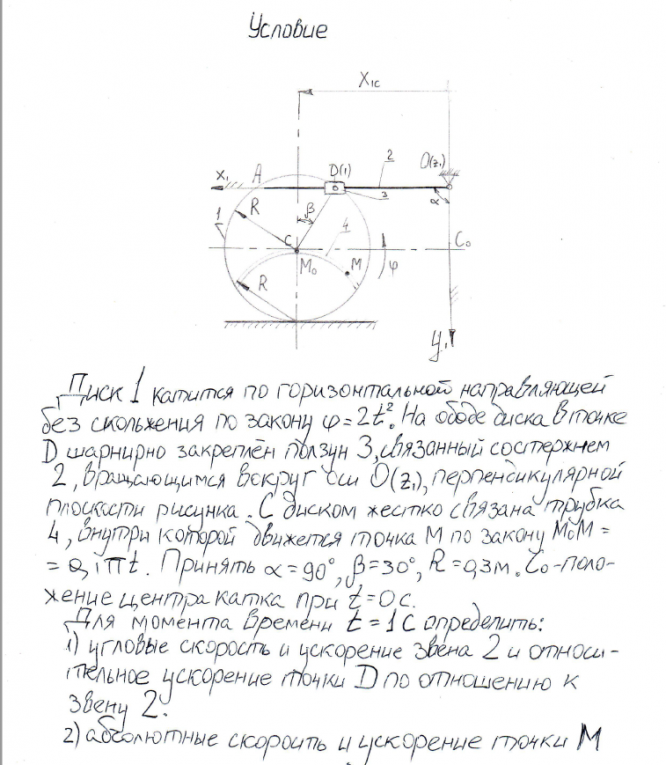 Условие
X1C
X1 A D(1) 2 O(z1)
3 α
1 R β 4
C C0
M0 M φ
R
y1
Диск 1 катится по горизонтальной направляющей
без скольжения по закону φ=2t². На ободе диска в точке
D шарнирно закреплён ползун 3, связанный со стержнем
2, вращающимся вокруг оси O(z1), перпендикулярной
плоскости рисунка. С диском жестко связана трубка
4, внутри которой движется точка M по закону M0M =
= 0,1πt. Принять α=90°, β=30°, R=0,3м. C0-поло-
жение центра катка при t=0с.
Для момента времени t=1с определить:
1) угловые скорость и ускорение звена 2 и относи-
тельное ускорение точки D по отношению к
звену 2.
2) абсолютные скорость и ускорение точки M